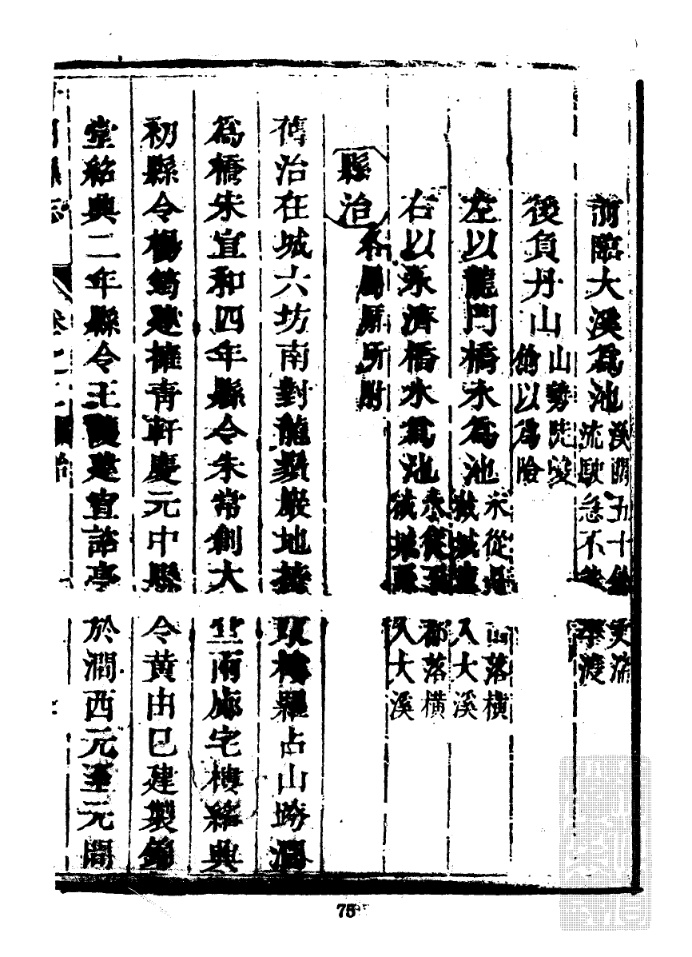 前臨大溪爲池溪闊五十餘丈湍流駛急不能舉渡
後負丹山山勢陡峻倚以爲險
左以龍門橋水爲池水從山落橫入大溪
右以永濟橋水爲池水從郡落橫入大溪
縣治各屬廨所附
舊治在城六坊南對龍巖地接羅占山跨澗
爲橋宋宣和四年縣令朱常創大堂兩廊宅樓紹興
初縣令楊筠建擁青軒慶元中縣令黃由巳建製錦
堂紹興二年縣令王建宣詔亭於澗西元至元間
縣志 卷之二 縣治
75